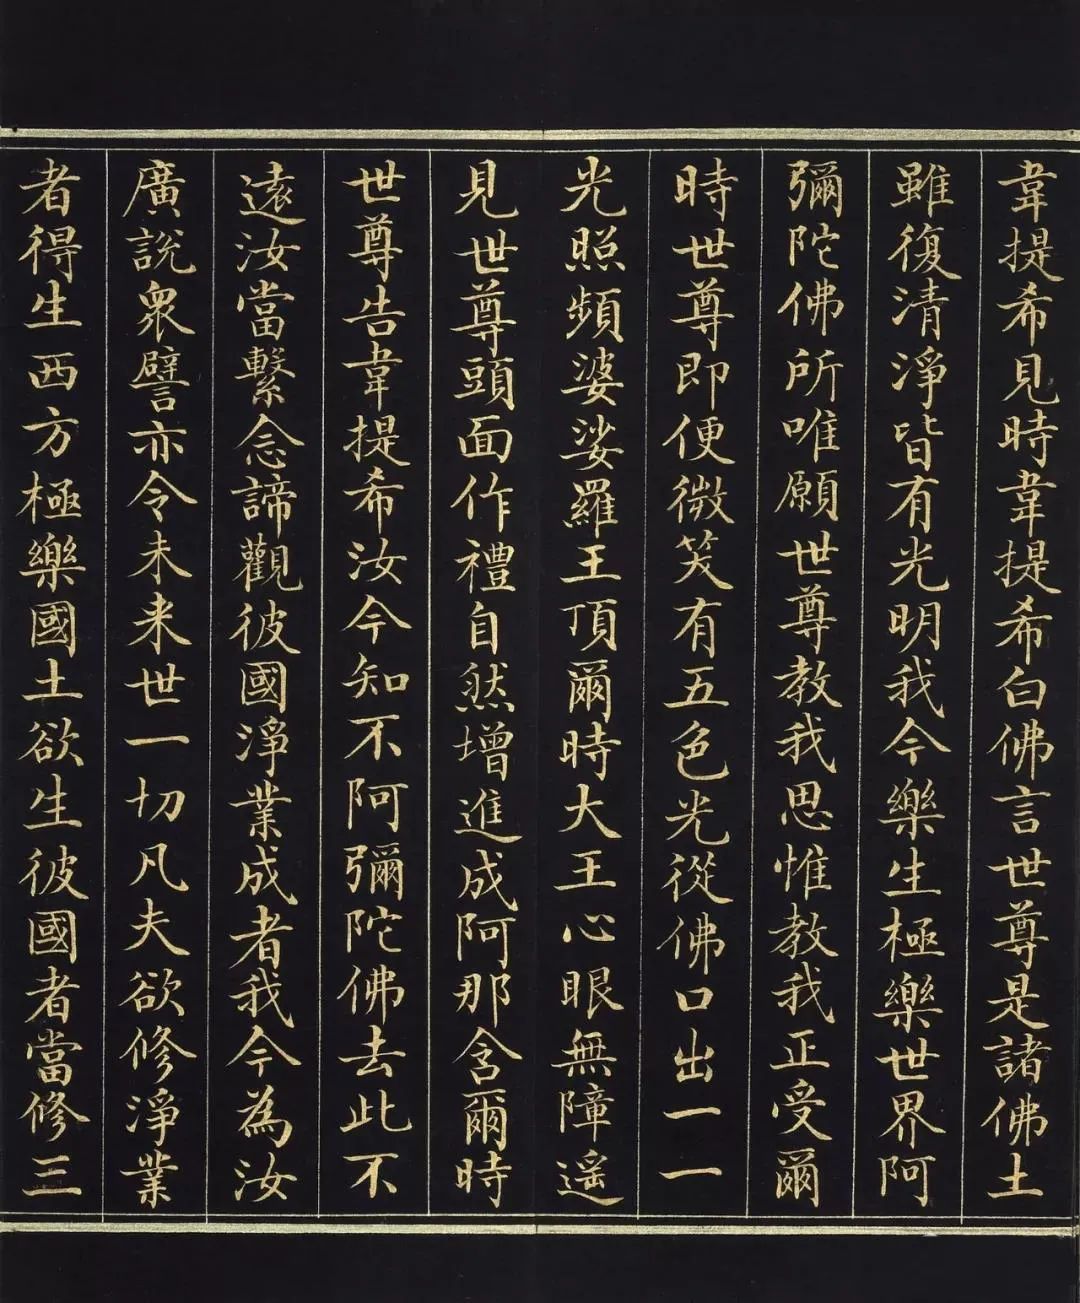 韋提希見時韋提希白佛言世尊是諸佛土
雖復清淨皆有光明我今樂生極樂世界阿
彌陀佛所唯願世尊教我思惟教我正受爾
時世尊即便微笑有五色光從佛口出一一
光照頻婆娑羅王頂爾時大王心眼無障遥
見世尊頭面作禮自然增進成阿那含爾時
世尊告韋提希汝今知不阿彌陀佛去此不
遠汝當繫念諦觀彼國淨業成者我今為汝
廣說眾譬亦令未来世一切凡夫欲修淨業
者得生西方極樂國土欲生彼國者當修三